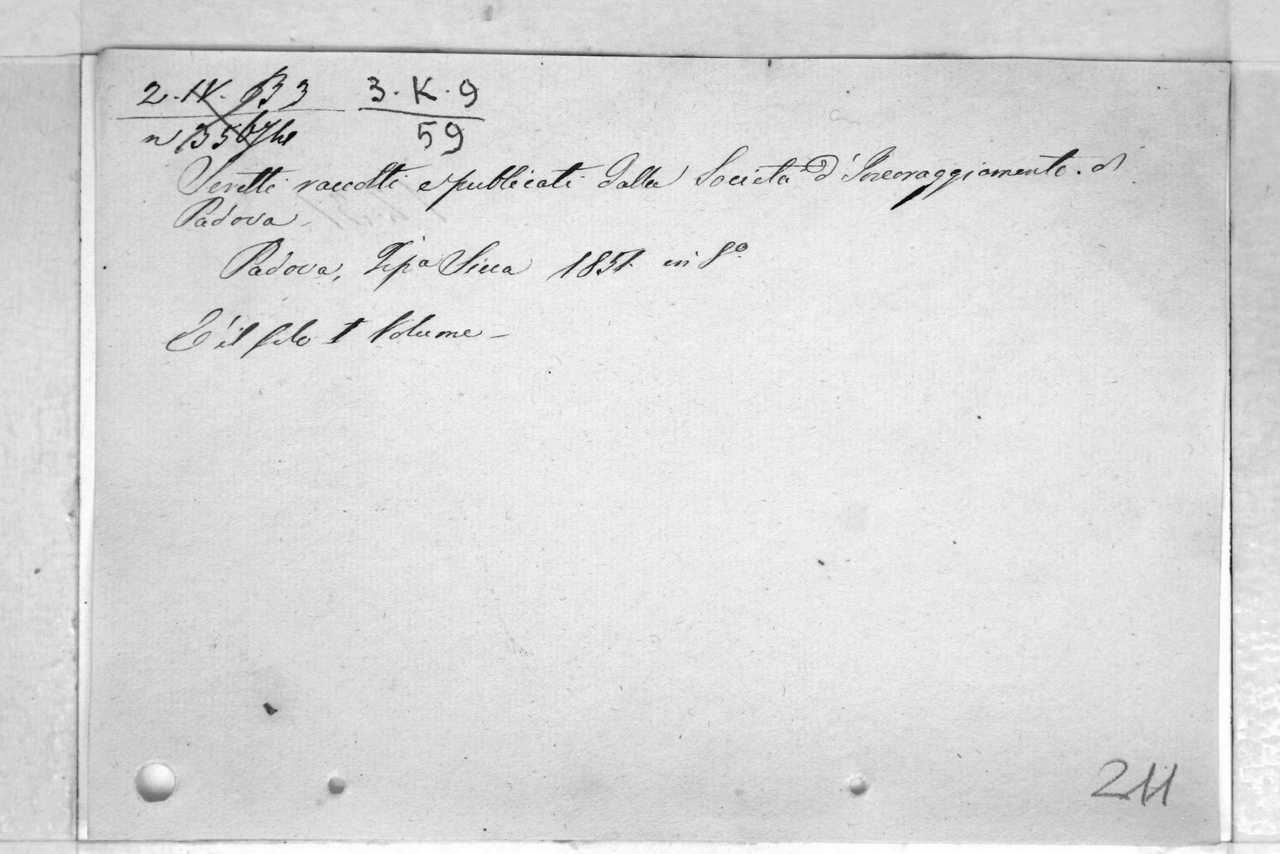 2. IV. B 3 3. K. 9
59
Scritti raccolti e publicati dalla Società d'Incoraggiamento. di
Padova.
Padova, Tip.a Sicca 1851. in 8o.
E' il solo 1 Volume -
211